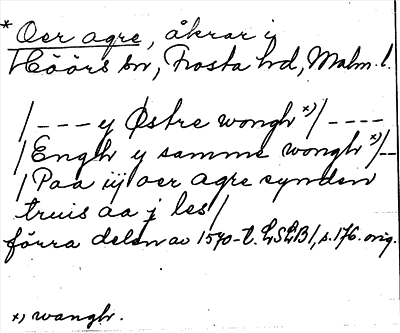 * Oer agre, åkrar i
Höörs sn, Frosta hd, Malm. l.
/ - - - y Østre wongh *)/ - - - -
/ Engh y samme wongh *)/ - -
/ Paa iij oer agre synden
truis aa j les /
förra delen av 1570-t. LSLB 1, s. 176. orig.
*) wangh.